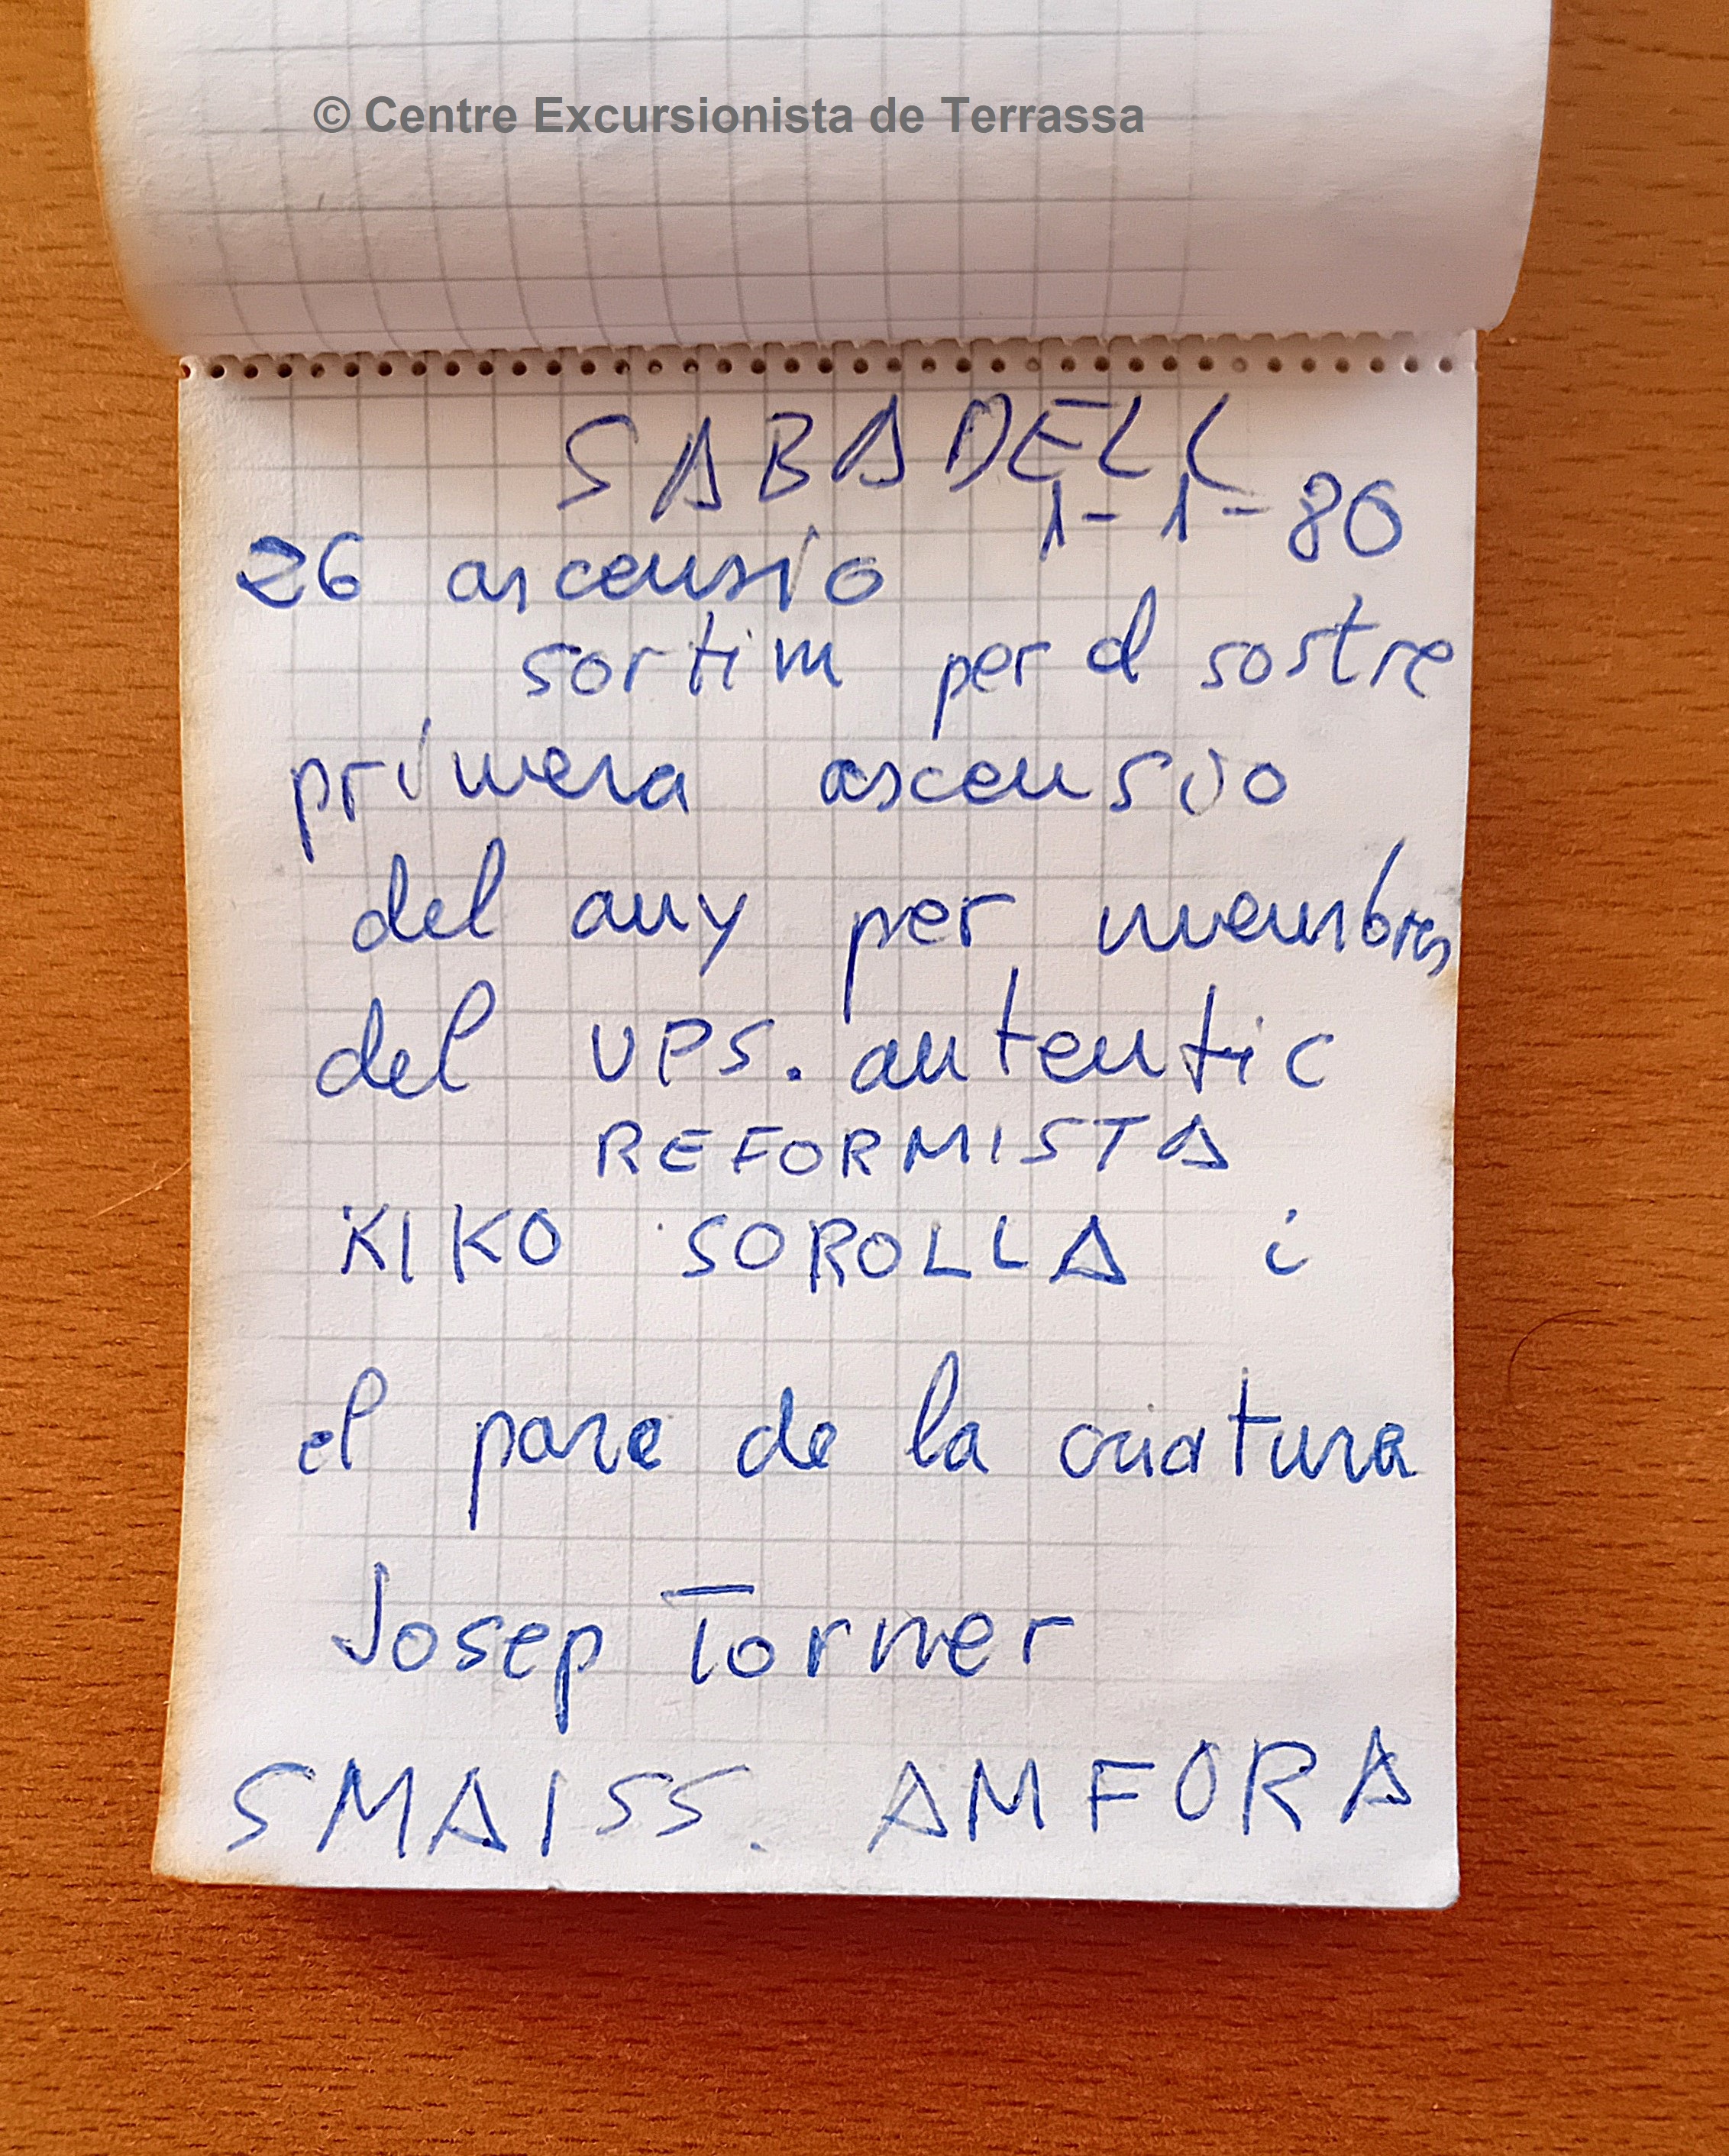 © Centre Excursionista de Terrassa
SABADELL
1-1-86
26 ascensio
sortim per el sostre
primera ascensio
del any per membres
del UPS. autentic
REFORMISTA
KIKO SOROLLA i
el pare de la criatura
Josep Torner
SMAISS. AMFORA